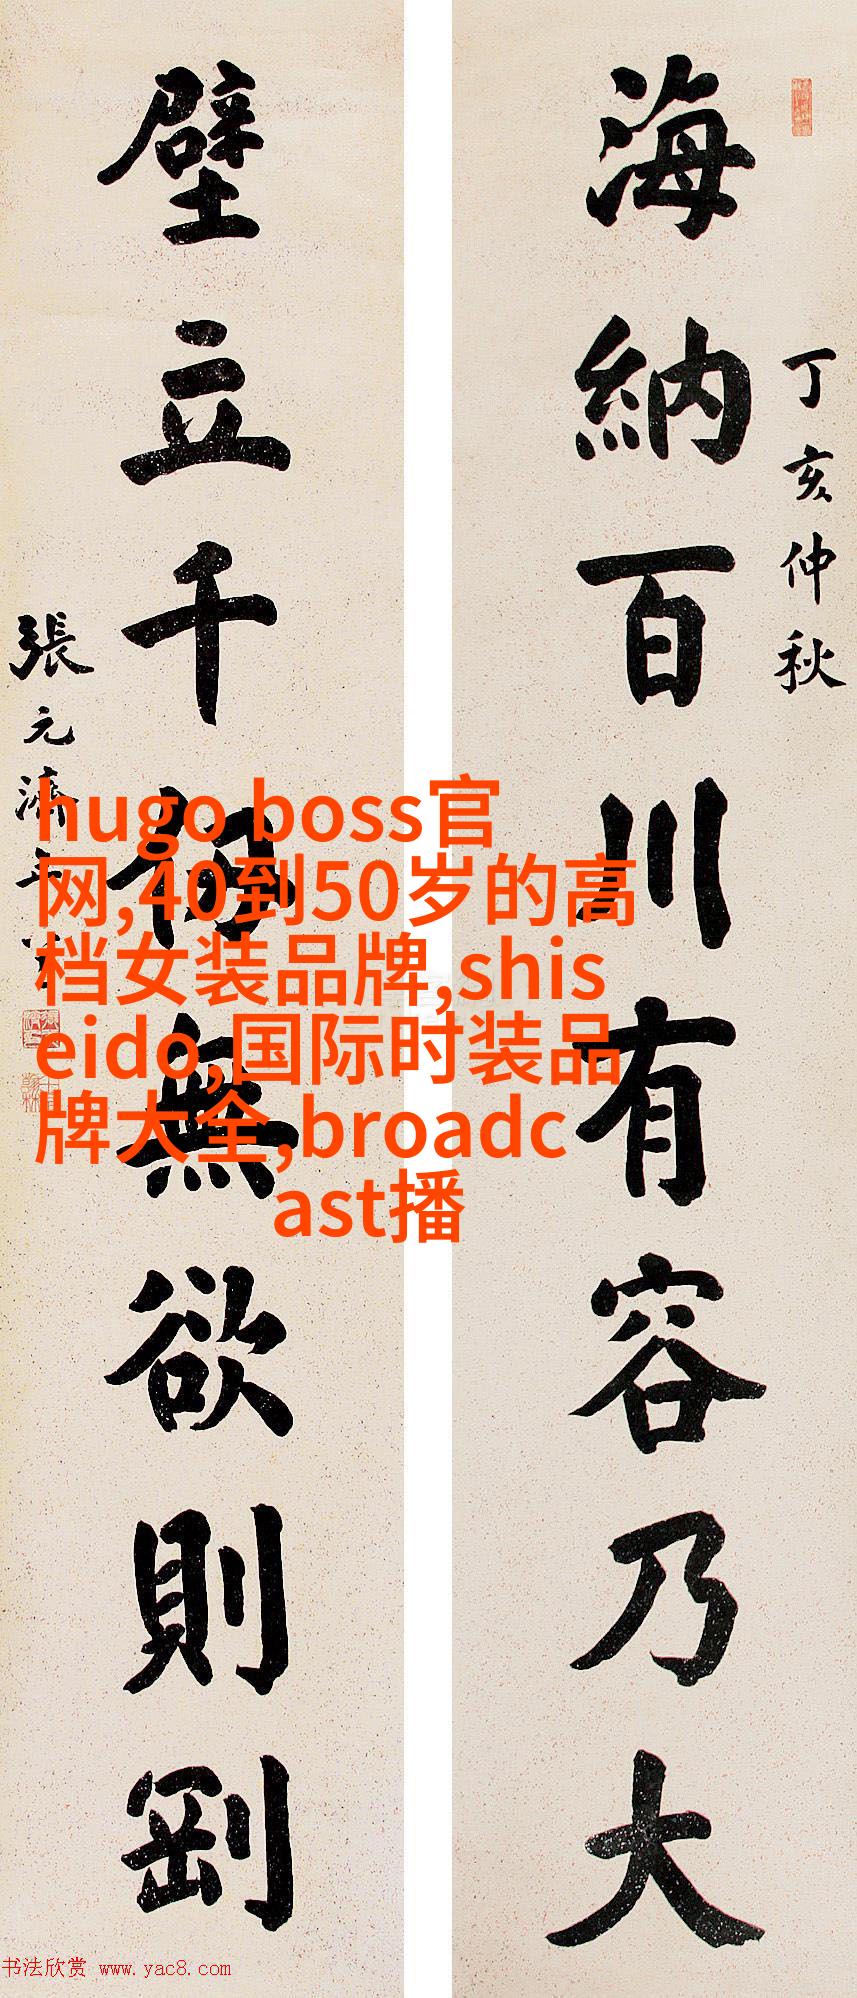 海納百川有容乃大
丁亥仲秋
壁立千仞無欲則剛
張元濟
hugo boss官
网,40到50岁的高
档女装品牌,shis
eido,国际时装品
牌大全,broadc
ast播
书法欣赏 www.yac8.com